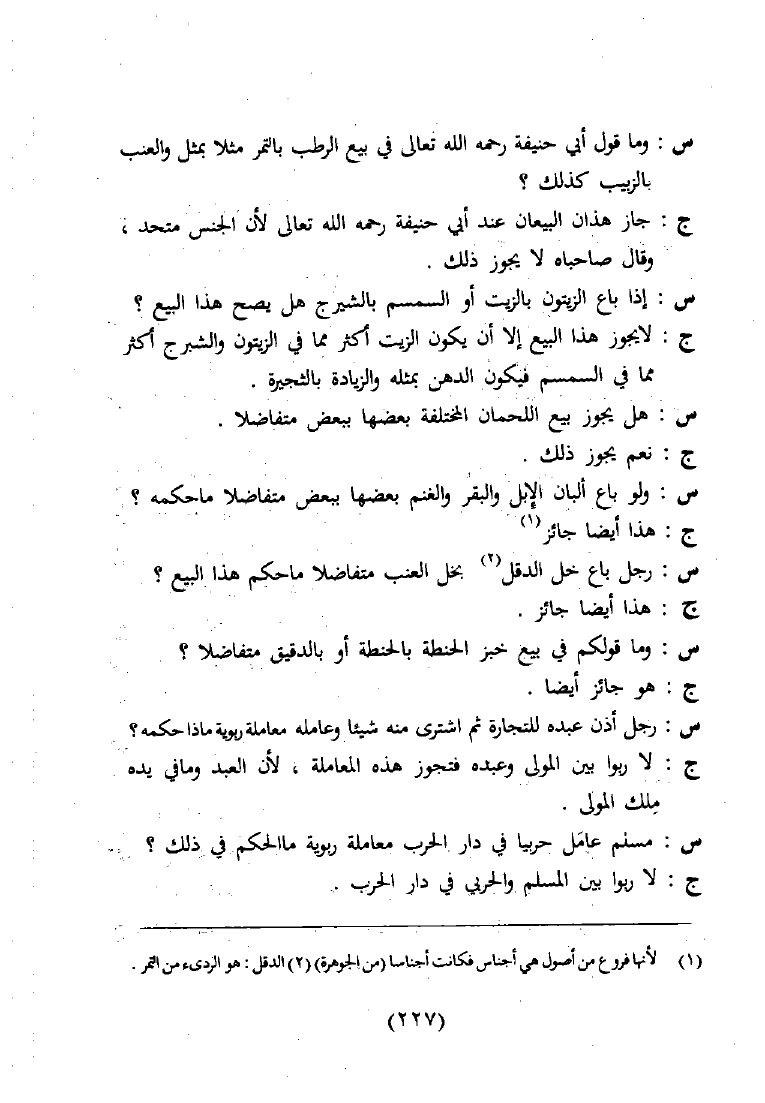 س : وما قول أبي حنيفة رحمه الله تعالى في بيع الرطب بالتمر مثلا بمثل والعنب
بالزبيب كذلك ؟
ج : جاز هذان البيعان عند أبي حنيفة رحمه الله تعالى لأن الجنس متحد ،
وقال صاحباه لا يجوز ذلك .
س : إذا باع الزيتون بالزيت أو السمسم بالشيرج هل يصح هذا البيع ؟
ج : لايجوز هذا البيع إلا أن يكون الزيت أكثر مما في الزيتون والشبرج أكثر
مما في السمسم فيكون الدهن بمثله والزيادة بالثجيرة .
س : هل يجوز بيع اللحمان المختلفة بعضها ببعض متفاضلا .
ج : نعم يجوز ذلك .
س : ولو باع ألبان الإبل والبقر والغنم بعضها ببعض متفاضلا ماحكمه ؟
ج : هذا أيضا جائز(١)
س : رجل باع خل الدقل(٢) بخل العنب متفاضلا ماحكم هذا البيع ؟
ج : هذا أيضا جائز .
س : وما قولكم في بيع خبز الحنطة بالحنطة أو بالدقيق متفاضلا ؟
ج : هو جائز أيضا .
س : رجل أذن عبده للتجارة ثم اشترى منه شيئا وعامله معاملة ربوية ماذا حكمه ؟
ج : لا ربوا بين المولى وعبده فتجوز هذه المعاملة ، لأن العبد ومافي يده
مِلك المولى .
س : مسلم عامَل حربيا في دار الحرب معاملة ربوية ماالحكم في ذلك ؟
ج : لا ربوا بين المسلم والحربي في دار الحرب .
(١) لأنها فروع من أصول هي أجناس فكانت أجناسا (من الجوهرة) (٢) الدقل : هو الردىء من التمر .
(٢٢٧)